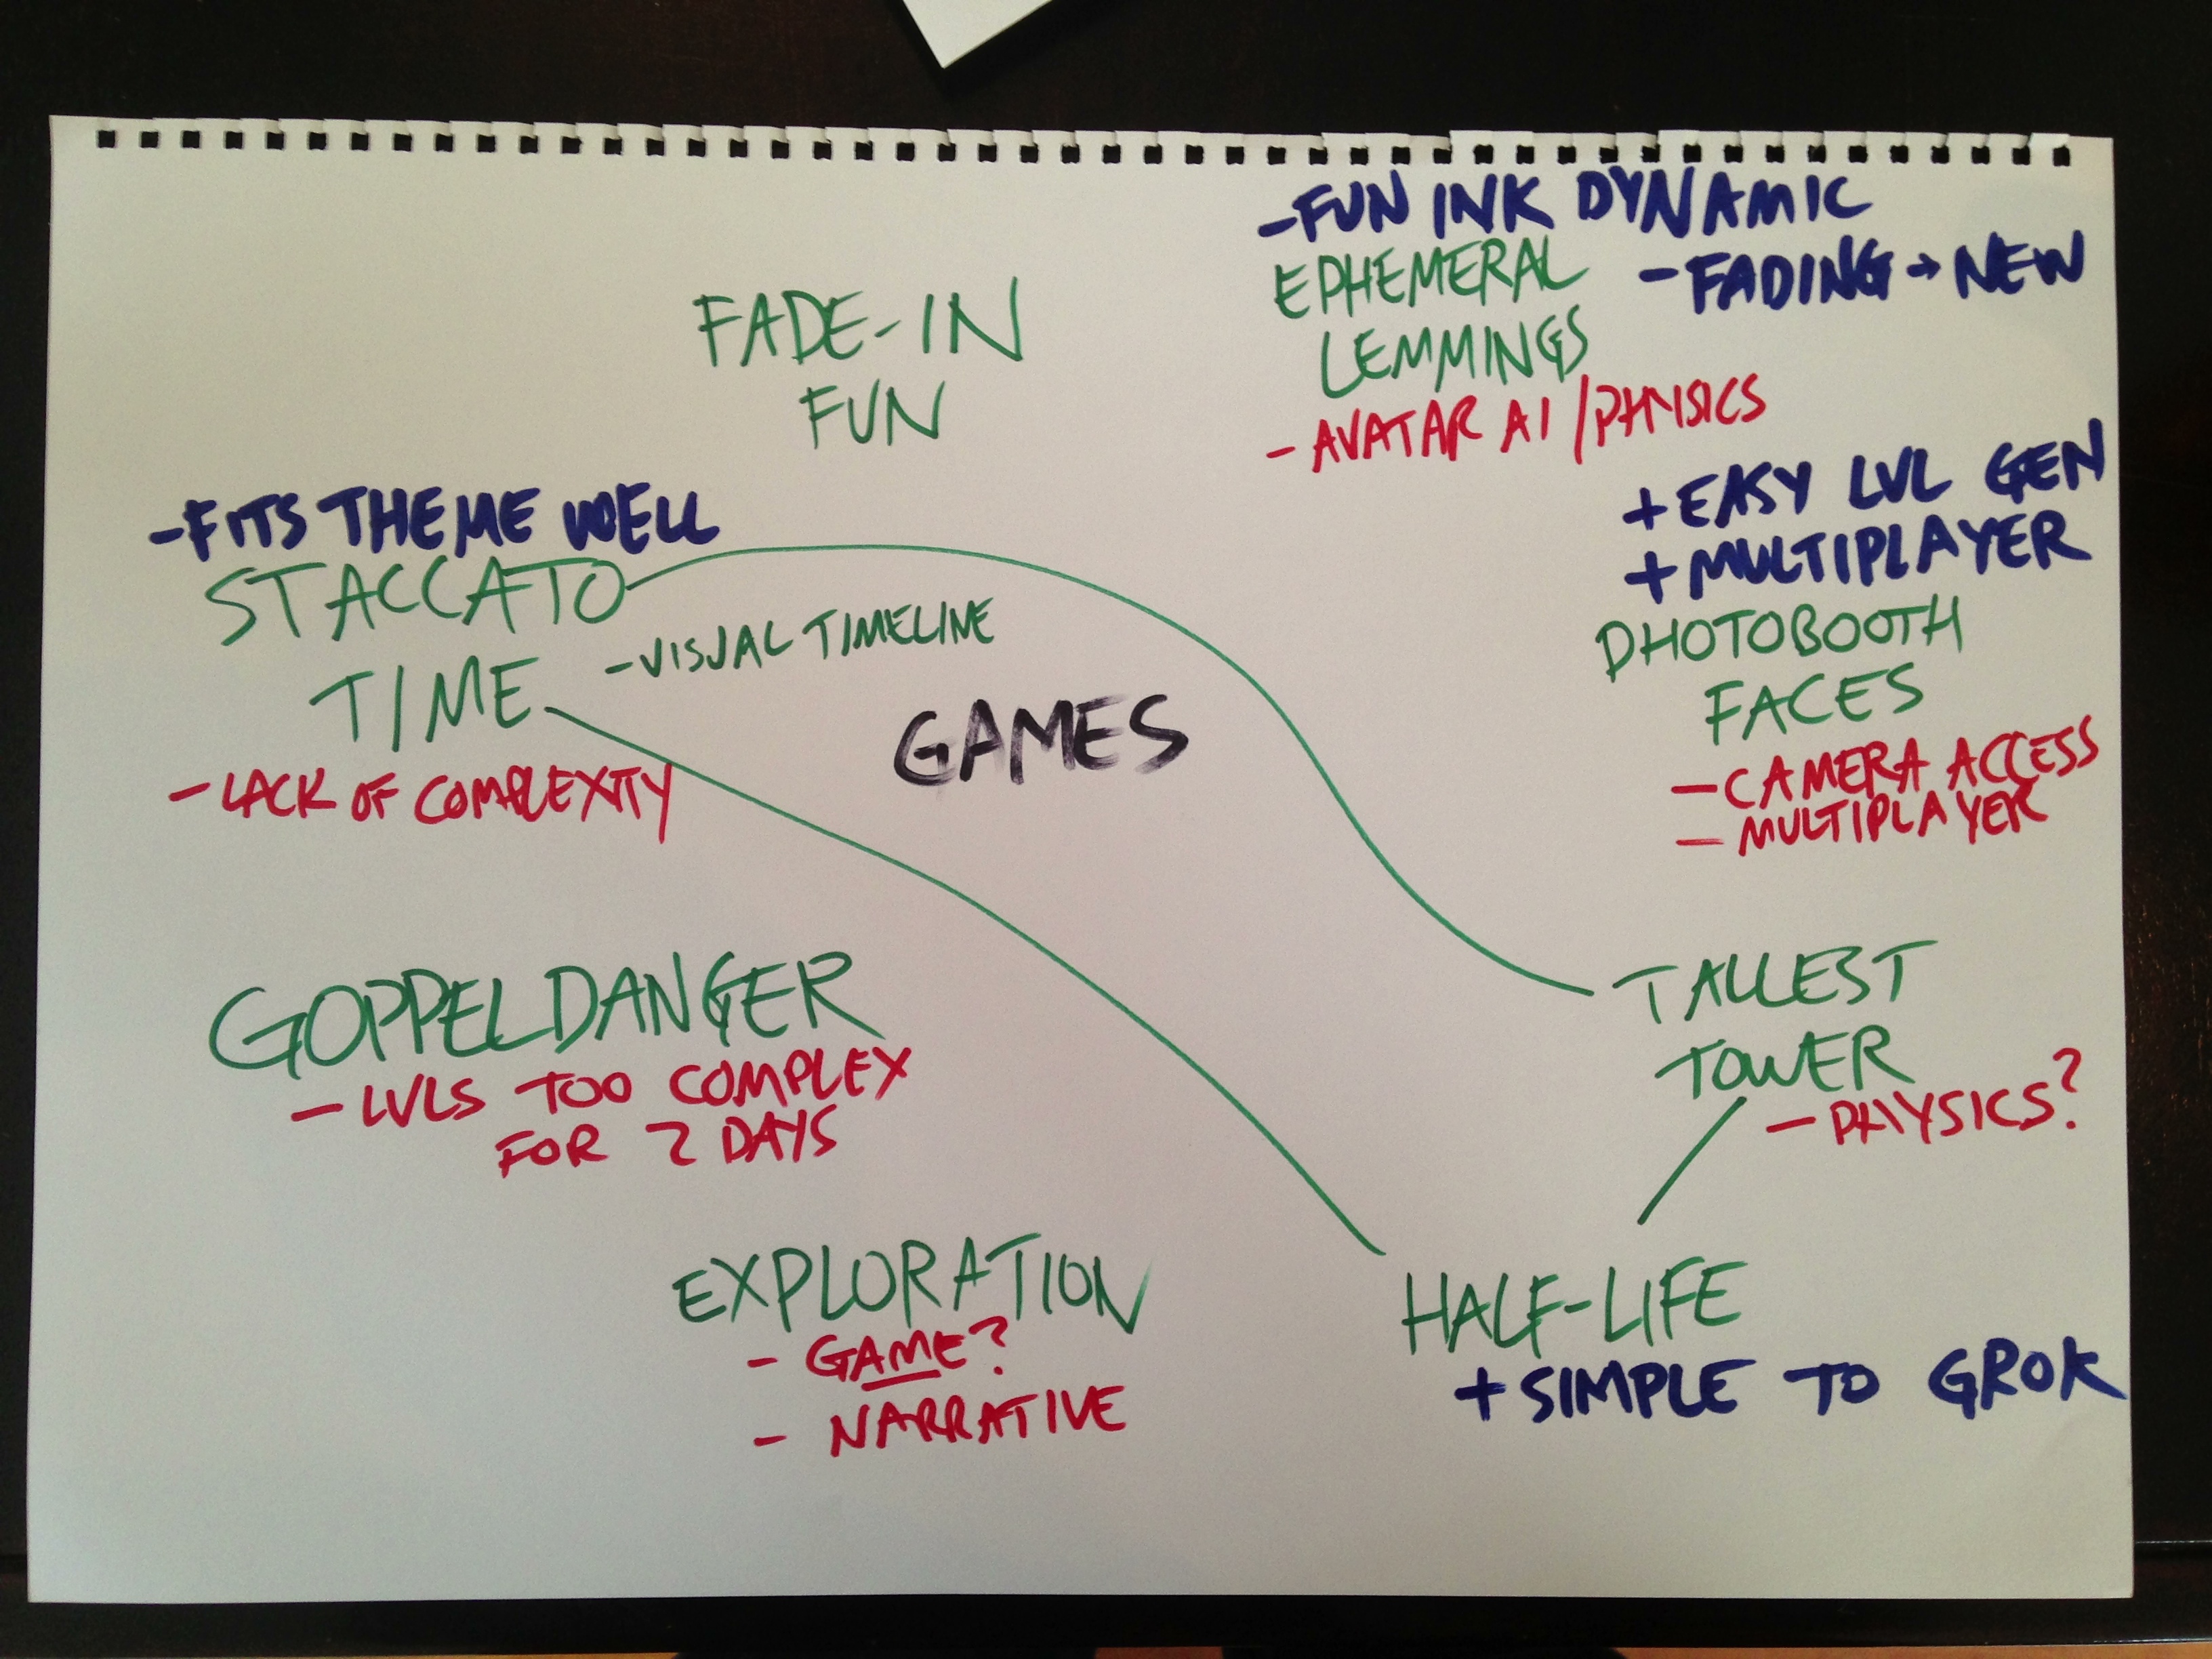 - FUN INK DYNAMIC
EPHEMERAL
LEMMINGS
- FADING → NEW
- AVATAR AI / PHYSICS
FADE-IN
FUN
+ EASY LVL GEN
+ MULTIPLAYER
PHOTOBOOTH
FACES
- CAMERA ACCESS
- MULTIPLAYER
- FITS THEME WELL
STACCATO
TIME
- VISUAL TIMELINE
- LACK OF COMPLEXITY
GAMES
GOPPELDANGER
- LVLS TOO COMPLEX
FOR 2 DAYS
TALLEST
TOWER
- PHYSICS?
EXPLORATION
- GAME?
- NARRATIVE
HALF-LIFE
+ SIMPLE TO GROK